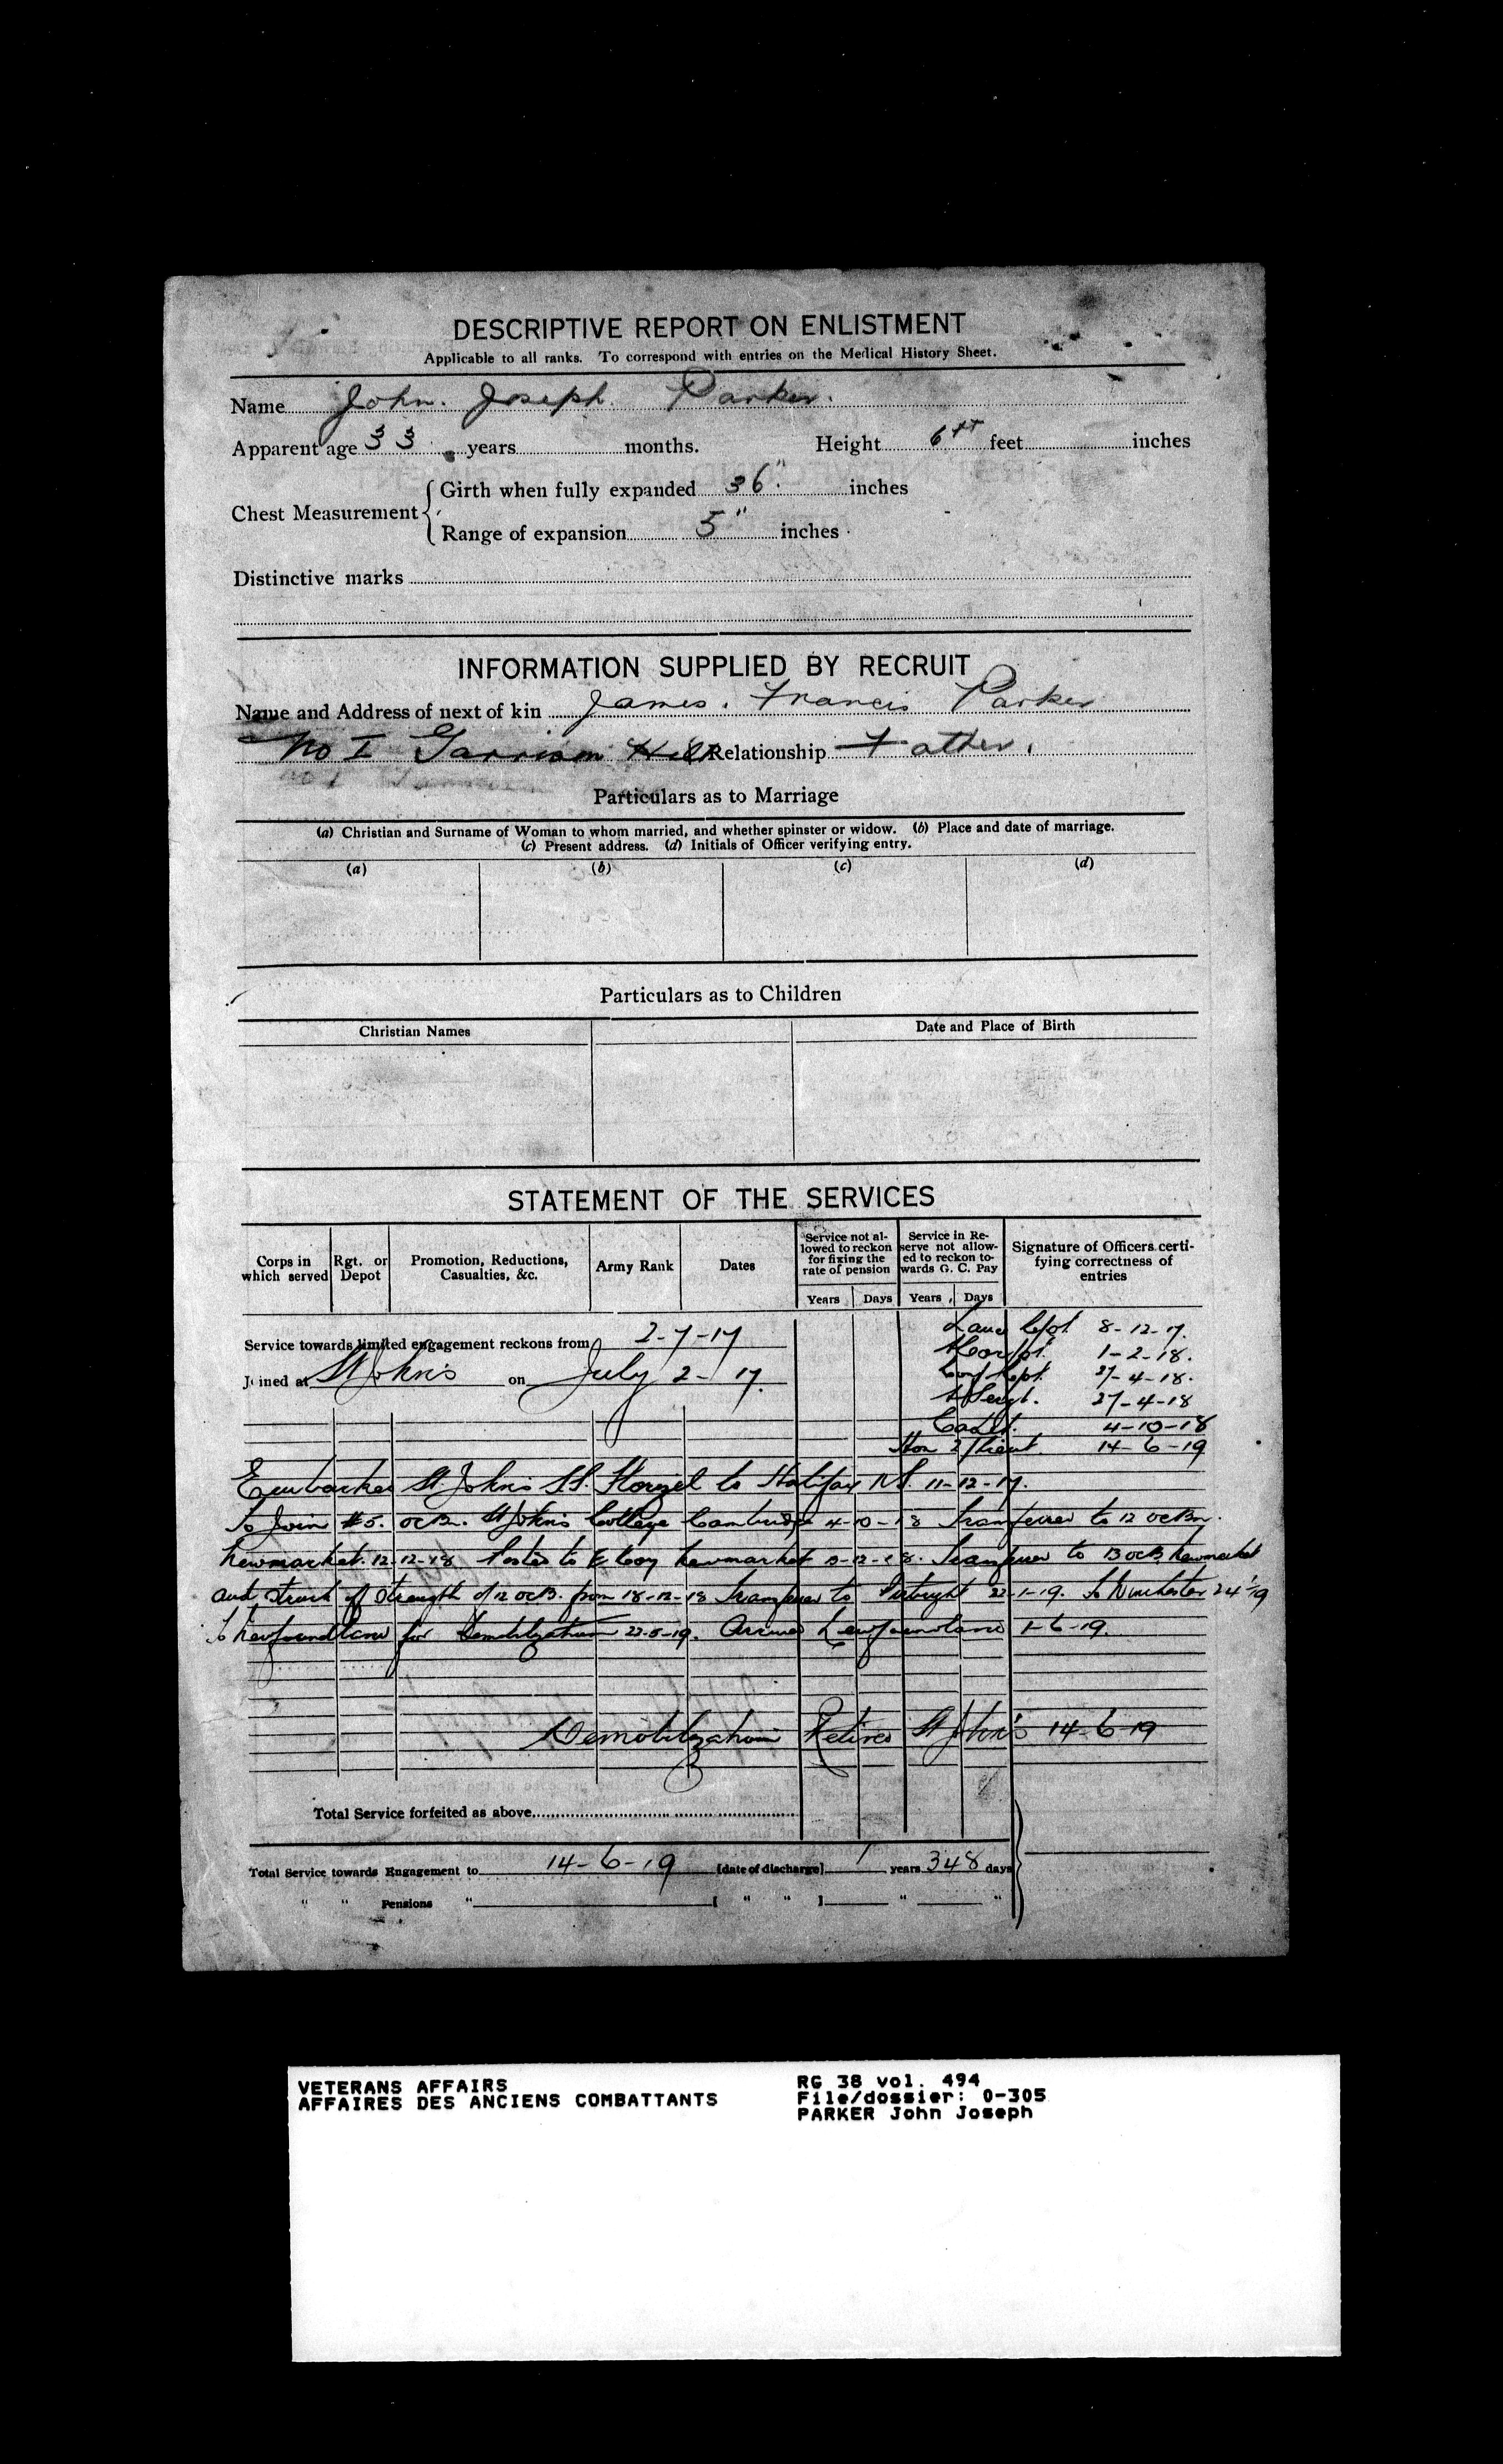 DESCRIPTIVE REPORT ON ENLISTMENT
Applicable to all ranks. To correspond with entries on the Medical History Sheet.
Name John. Joseph. Parker.
Apparent age 33 years months. Height 6 ft feet inches
Chest Measurement
Girth when fully expanded 36" inches
Range of expansion 5" inches
Distinctive marks
INFORMATION SUPPLIED BY RECRUIT
Name and Address of next of kin James. Francis Parker
No I Garrison Hill Relationship Father.
Particulars as to Marriage
(a) Christian and Surname of Woman to whom married, and whether spinster or widow. (b) Place and date of marriage.
(c) Present address. (d) Initials of Officer verifying entry.
(a) (b) (c) (d)
Particulars as to Children
Christian Names Date and Place of Birth
STATEMENT OF THE SERVICES
Corps in which served Rgt. or Depot Promotion, Reductions, Casualties, &c. Army Rank Dates Service not allowed to reckon for fixing the rate of pension Service in Reserve not allowed to reckon towards G. C. Pay Signature of Officers certifying correctness of entries
Years Days Years Days
Lance Cpl 8-12-17.
Service towards limited engagement reckons from 2-7-17
1-2-18.
Joined at St John's on July 2-17.
27-4-18.
Sergt. 27-4-18
Cadet. 4-10-18
Hon 2/Lieut. 14-6-19
Embarked St. John's S.S. Florizel to Halifax N.S. 11-12-17.
To Join #5. OCBn. St John's College Cambridge 4-10-18 Transferred to 12 OCBn.
Newmarket. 12-12-18 Posted to E Coy Newmarket 13-12-18. Transferred to 13 OCB Newmarket
and Struck off Strength of 12 OCB. from 18-12-18 Transferred to 22-1-19. To Winchester 24-1-19
To Newfoundland for Demobilization 22-5-19. Arrived Newfoundland 1-6-19.
Demobilization Retired St John's 14-6-19
Total Service forfeited as above
Total Service towards Engagement to 14-6-19 [date of discharge] 1 years 348 days
" " Pensions " [ " " ] " "
VETERANS AFFAIRS
AFFAIRES DES ANCIENS COMBATTANTS
RG 38 vol. 494
File/dossier: 0-305
PARKER John Joseph